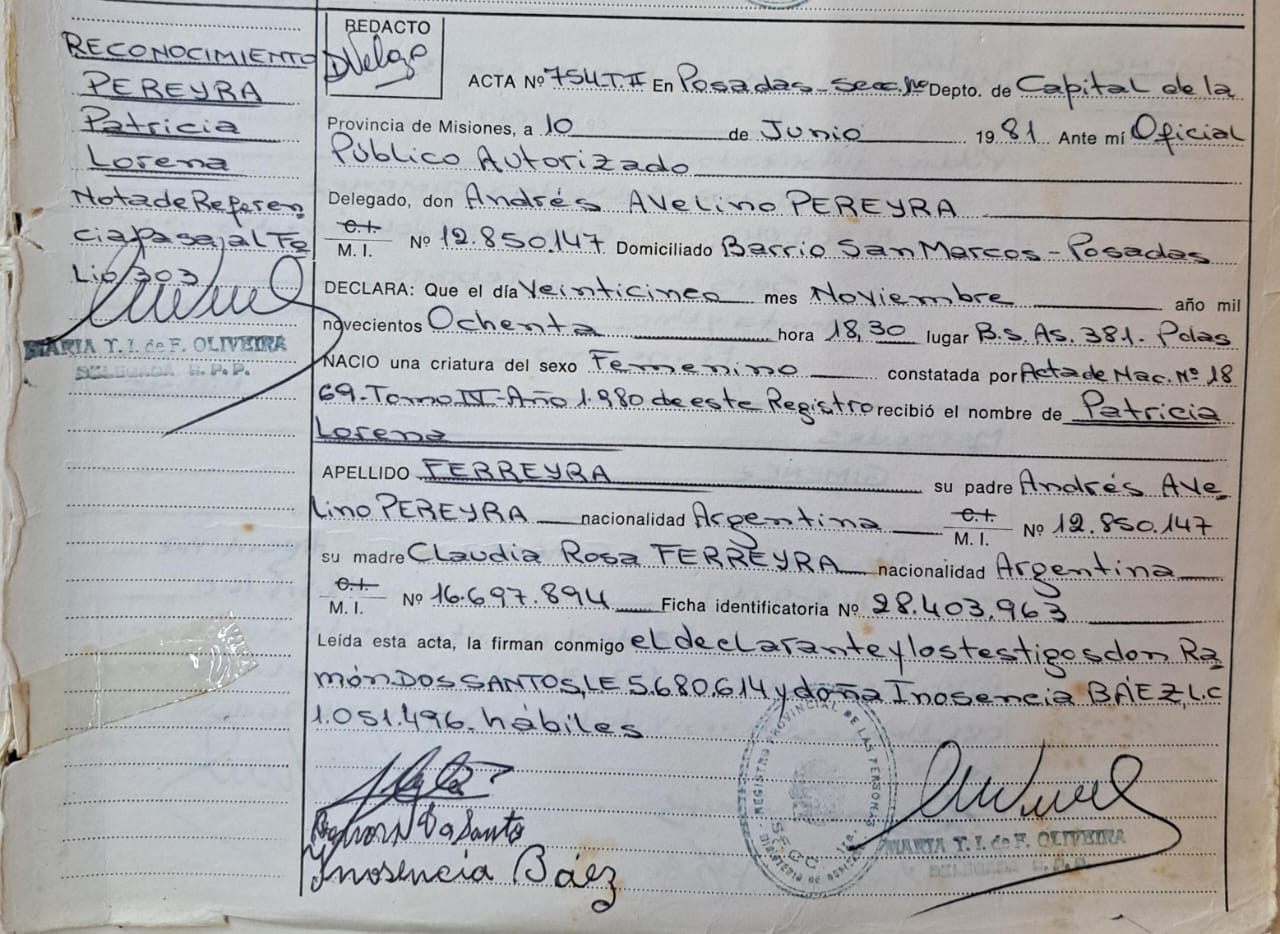 RECONOCIMIENTO
PEREYRA
Patricia
Lorena
Nota de Referen
cia pasa al To
Lio 303
MARIA T. I. de F. OLIVEIRA
DELEGADA R. P. P.
REDACTO
DVelazo
ACTA Nº 754 T. II En Posadas - Secc. 1ª Depto. de Capital de la
Provincia de Misiones, a 10 de Junio 1981 Ante mí Oficial
Público Autorizado
Delegado, don Andrés Avelino PEREYRA
C.I. M. I. Nº 12.850.147 Domiciliado Barrio San Marcos - Posadas
DECLARA: Que el día Veinticinco mes Noviembre año mil
novecientos Ochenta hora 18,30 lugar B.s. As. 381. Pdas
NACIO una criatura del sexo Femenino constatada por Acta de Nac. Nº 18
69. Tomo IV - Año 1.980 de este Registro recibió el nombre de Patricia
Lorena
APELLIDO FERREYRA su padre Andrés Ave
lino PEREYRA nacionalidad Argentina C.I. M. I. Nº 12.850.147
su madre Claudia Rosa FERREYRA nacionalidad Argentina
C.I. M. I. Nº 16.697.894 Ficha identificatoria Nº 28.403.963
Leída esta acta, la firman conmigo el declarante y los testigos don Ra
món DOS SANTOS, LE 5.680.614 y doña Inosencia BÁEZ, L.C
1.051.496. hábiles
Ramon Do Santo
Inosencia Báez
REGISTRO PROVINCIAL DE LAS PERSONAS
MARIA T. I. de F. OLIVEIRA
DELEGADA R. P. P.